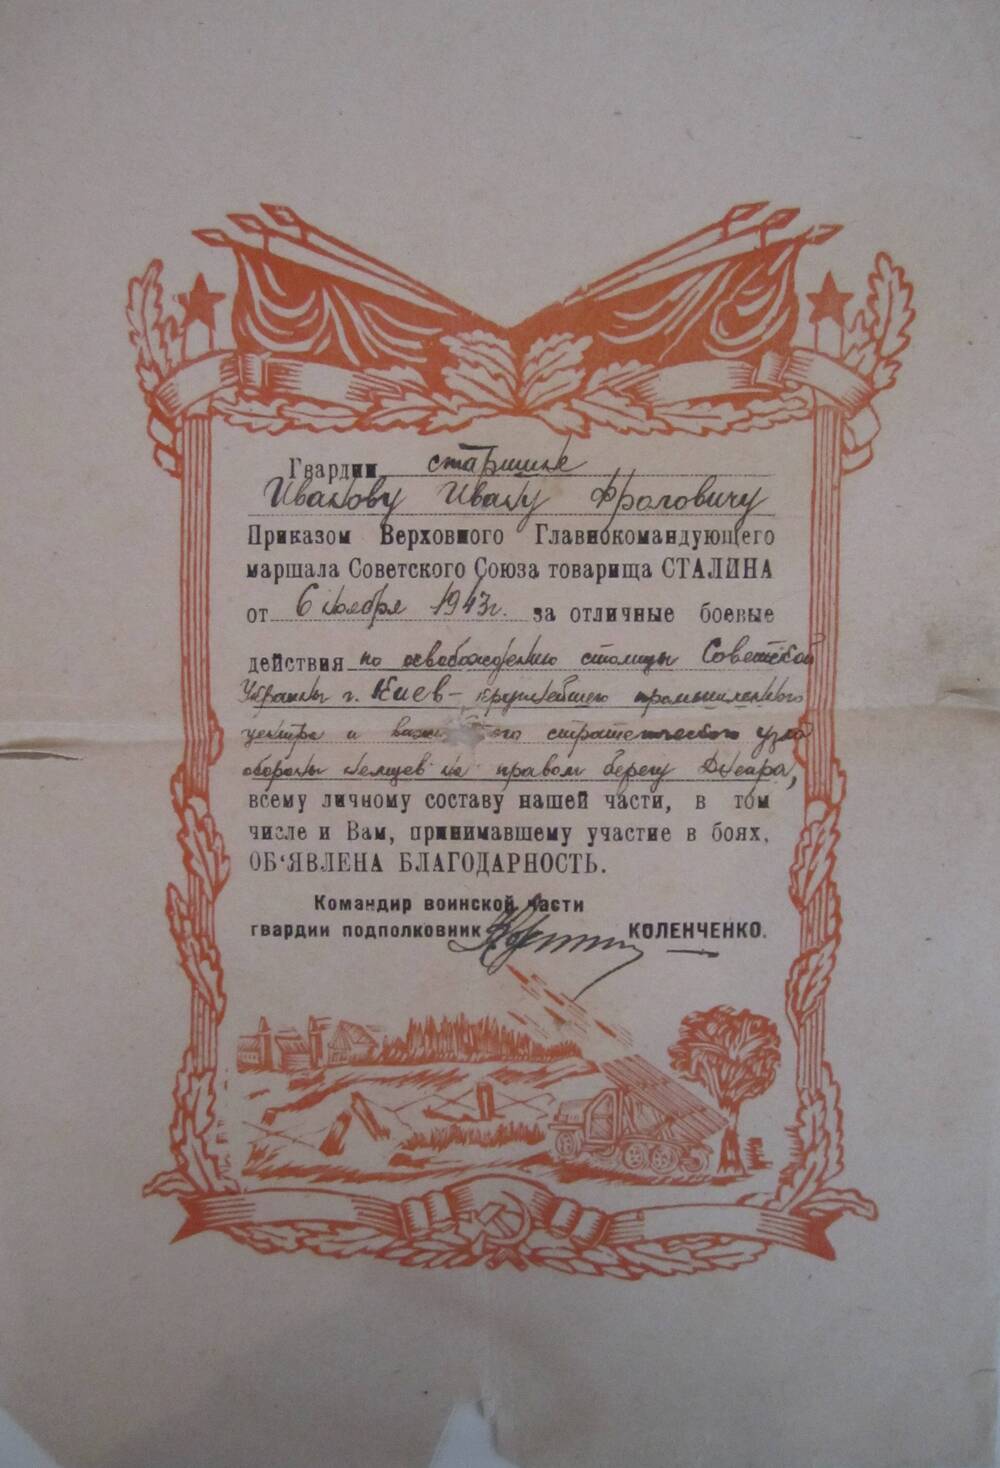 Гвардии старшине
Иванову Ивану Фроловичу
Приказом Верховного Главнокомандующего
маршала Советского Союза товарища СТАЛИНА
от 6 ноября 1943г. за отличные боевые
действия по освобождению столицы Советской
Украины г. Киев - крупнейшего промышленного
центра и важ го стратегического узла
обороны немцев на правом берегу Днепра,
всему личному составу нашей части, в том
числе и Вам, принимавшему участие в боях,
ОБ‘ЯВЛЕНА БЛАГОДАРНОСТЬ.
Командир воинской части
гвардии подполковник КОЛЕНЧЕНКО.